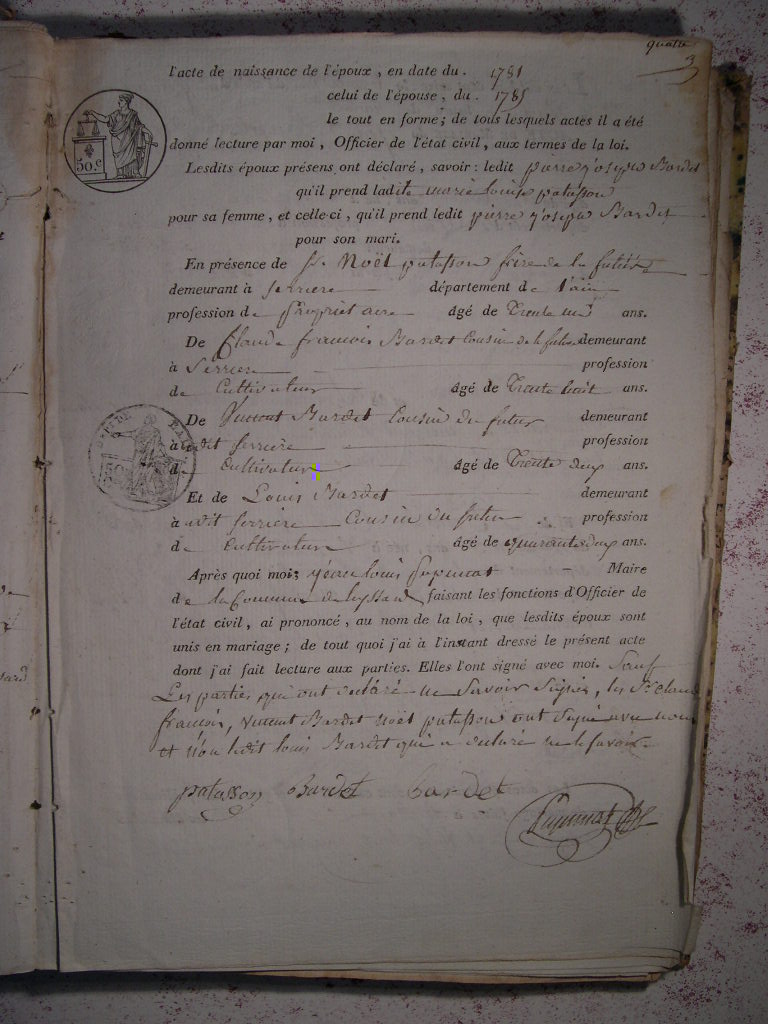 quatre
3
l'acte de naissance de l'époux, en date du. 1781
celui de l'épouse, du. 1785
le tout en forme; de tous lesquels actes il a été
donné lecture par moi, Officier de l'état civil, aux termes de la loi.
50 c
Lesdits époux présens ont déclaré, savoir: ledit pierre joseph Bardet
qu'il prend ladite marie louise patasson
pour sa femme, et celle-ci, qu'il prend ledit pierre joseph Bardet
pour son mari.
En présence de Sr. Noël patasson frere de la future
demeurant à Serriere département de l'ain
profession de propriétaire âgé de Trente ans.
De Claude francois Bardet Cousin de futur demeurant
à Serriere profession
de Cultivateur âgé de Trente huit ans.
De Vincent Bardet Cousin du futur demeurant
à udit serriere profession
de Cultivateur âgé de Trente deux ans.
Et de Louis Bardet demeurant
à udit serriere Cousin du futur profession
de Cultivateur âgé de quarante deux ans.
Après quoi moi; jean louis Maire
de la Commune de faisant les fonctions d'Officier de
l'état civil, ai prononcé, au nom de la loi, que lesdits époux sont
unis en mariage; de tout quoi j'ai à l'instant dressé le présent acte
dont j'ai fait lecture aux parties. Elles l'ont signé avec moi. Sauf
Les parties qui ont déclaré ne Savoir Signer, les Sr. Claude
francois, vincent Bardet noël patasson ont Signé avec nous
et non ledit louis Bardet qui a déclaré ne le savoir
patasson Bardet bardet